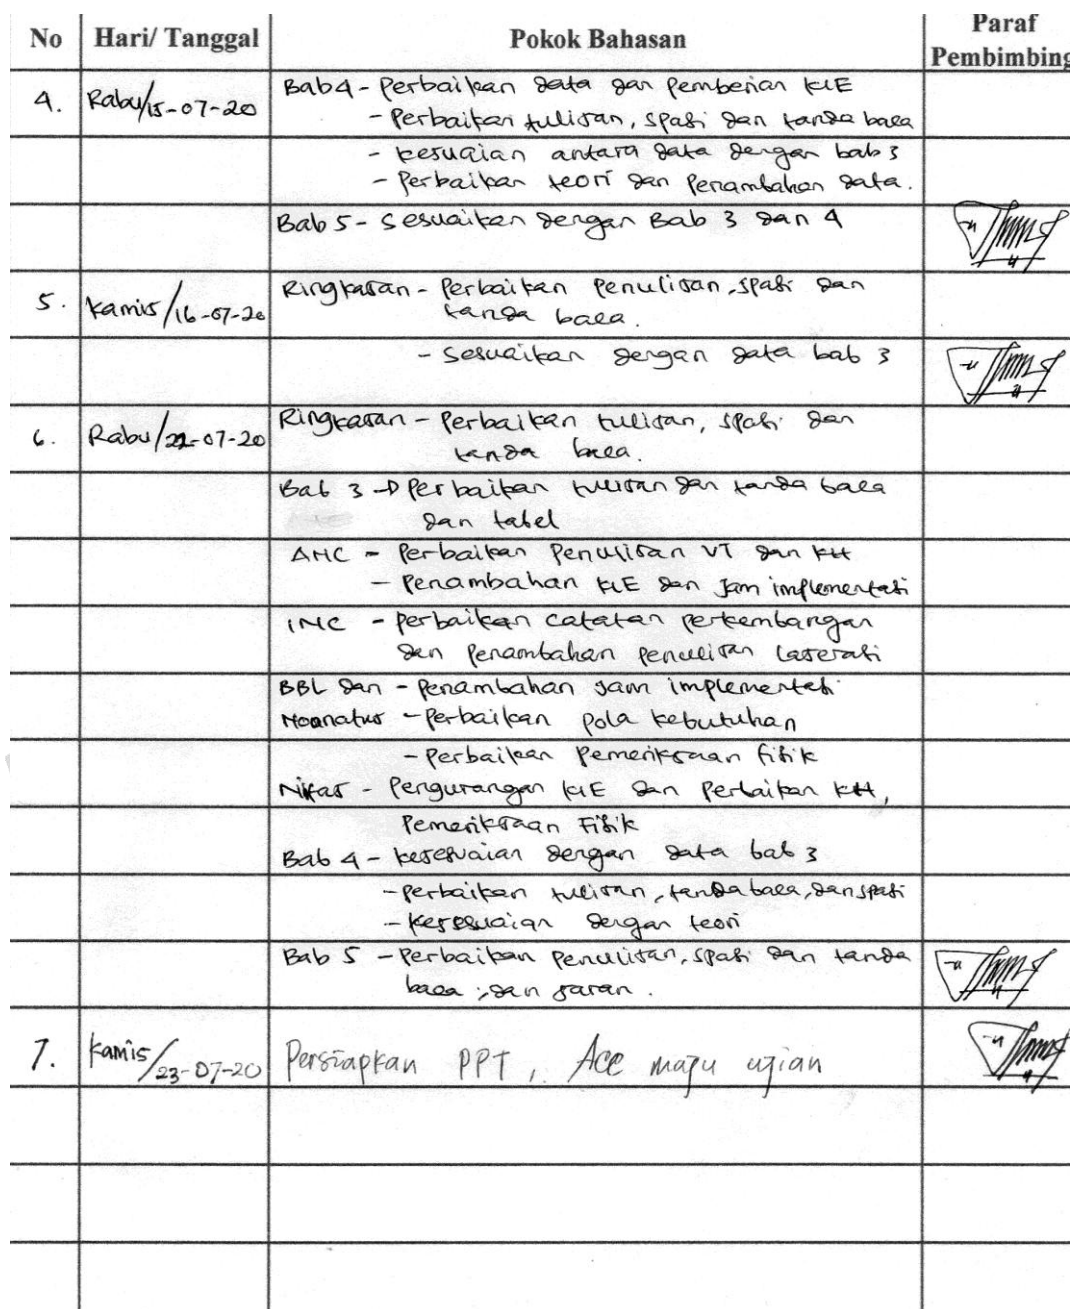 No Hari/ Tanggal Pokok Bahasan Paraf Pembimbing
4. Rabu/15-07-20 Bab 4 - Perbaikan data dan pemberian KIE
- Perbaikan tulisan, spasi dan tanda baca
- kesuaian antara data dengan bab 3
- Perbaikan teori dan Penambahan data.
Bab 5 - Sesuaikan dengan Bab 3 dan 4
5. Kamis/16-07-20 Ringkasan - Perbaikan Penulisan, spasi dan
tanda baca.
- Sesuaikan dengan data bab 3
6. Rabu/22-07-20 Ringkasan - Perbaikan tulisan, spasi dan
tanda baca.
Bab 3 → Perbaikan tulisan dan tanda baca
dan tabel
ANC - Perbaikan Penulisan VT dan KH
- Penambahan KIE dan Jam implementasi
INC - perbaikan catatan perkembangan
dan Penambahan penulisan laserasi
BBL dan - Penambahan Jam implementasi
Noanatus - Perbaikan pola kebutuhan
- Perbaikan Pemeriksaan fisik
Nifas - Pengurangan KIE dan Perbaikan KH,
Pemeriksaan Fisik
Bab 4 - kesesuaian dengan data bab 3
- perbaikan tulisan, tanda baca, dan spasi
- Kesesuaian dengan teori
Bab 5 - Perbaikan Penulisan, spasi dan tanda
baca, dan saran.
7. Kamis/23-07-20 Persiapkan PPT, Acc maju ujian